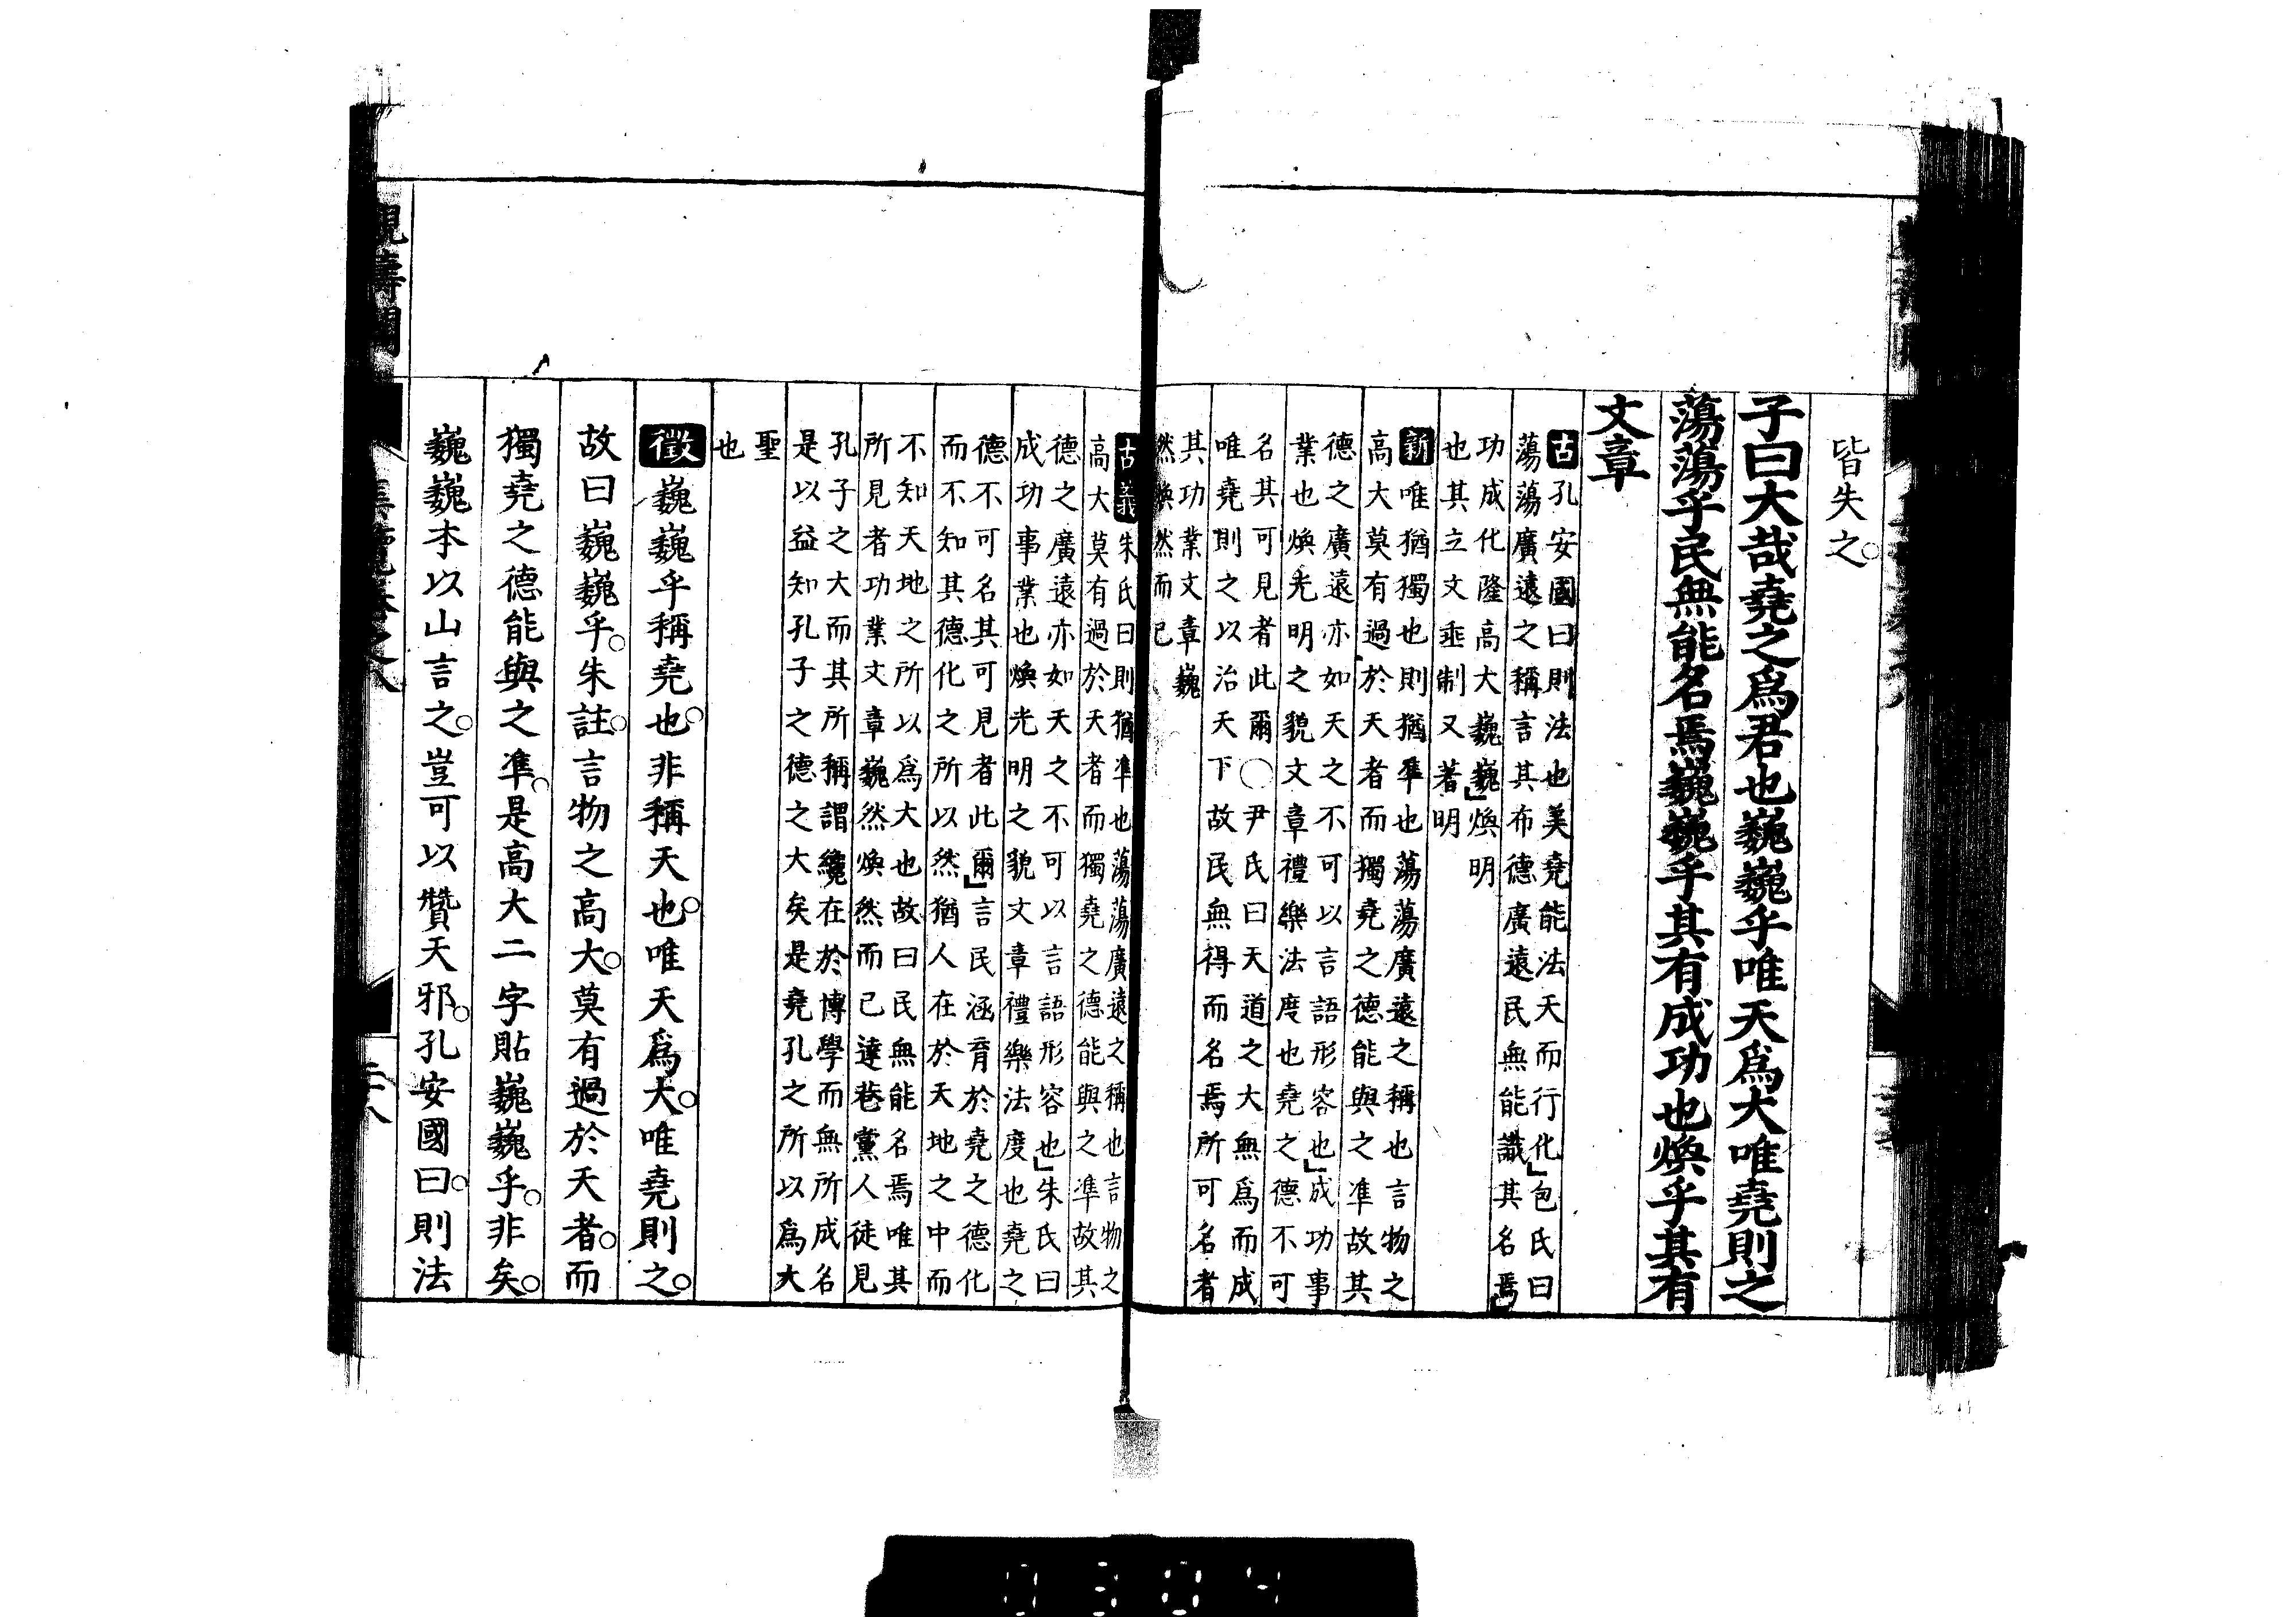 皆失之
子曰大哉堯之爲君也巍巍乎唯天爲大唯堯則之
蕩蕩乎民無能名焉巍巍乎其有成功也煥乎其有
文章
古孔安國曰則法也美堯能法天而行化包氏曰
蕩蕩廣遠之稱言其布德廣遠民無能識其名焉
功成化隆高大巍巍煥明
也其立文垂制又著明
新唯猶獨也則猶準也蕩蕩廣遠之稱也言物之
高大莫有過於天者而獨堯之德能與之準故其
德之廣遠亦如天之不可以言語形容也成功事
業也煥光明之貌文章禮樂法度也堯之德不可
名其可見者此爾○尹氏曰天道之大無爲而成
唯堯則之以治天下故民無得而名焉所可名者
其功業文章巍
然煥然而已
古義朱氏曰則猶準也蕩蕩廣遠之稱也言物之
高大莫有過於天者而獨堯之德能與之準故其
德之廣遠亦如天之不可以言語形容也朱氏曰
成功事業也煥光明之貌文章禮樂法度也堯之
德不可名其可見者此爾言民涵育於堯之德化
而不知其德化之所以然猶人在於天地之中而
不知天地之所以爲大也故曰民無能名焉唯其
所見者功業文章巍然煥然而已達巷黨人徒見
孔子之大而其所稱謂纔在於博學而無所成名
是以益知孔子之德之大矣是堯孔之所以爲大
聖
也
徵巍巍乎稱堯也非稱天也唯天爲大唯堯則之
故曰巍巍乎朱註言物之高大莫有過於天者而
獨堯之德能與之準是高大二字貼巍巍乎非矣
巍巍本以山言之豈可以贊天邪孔安國曰則法
0304